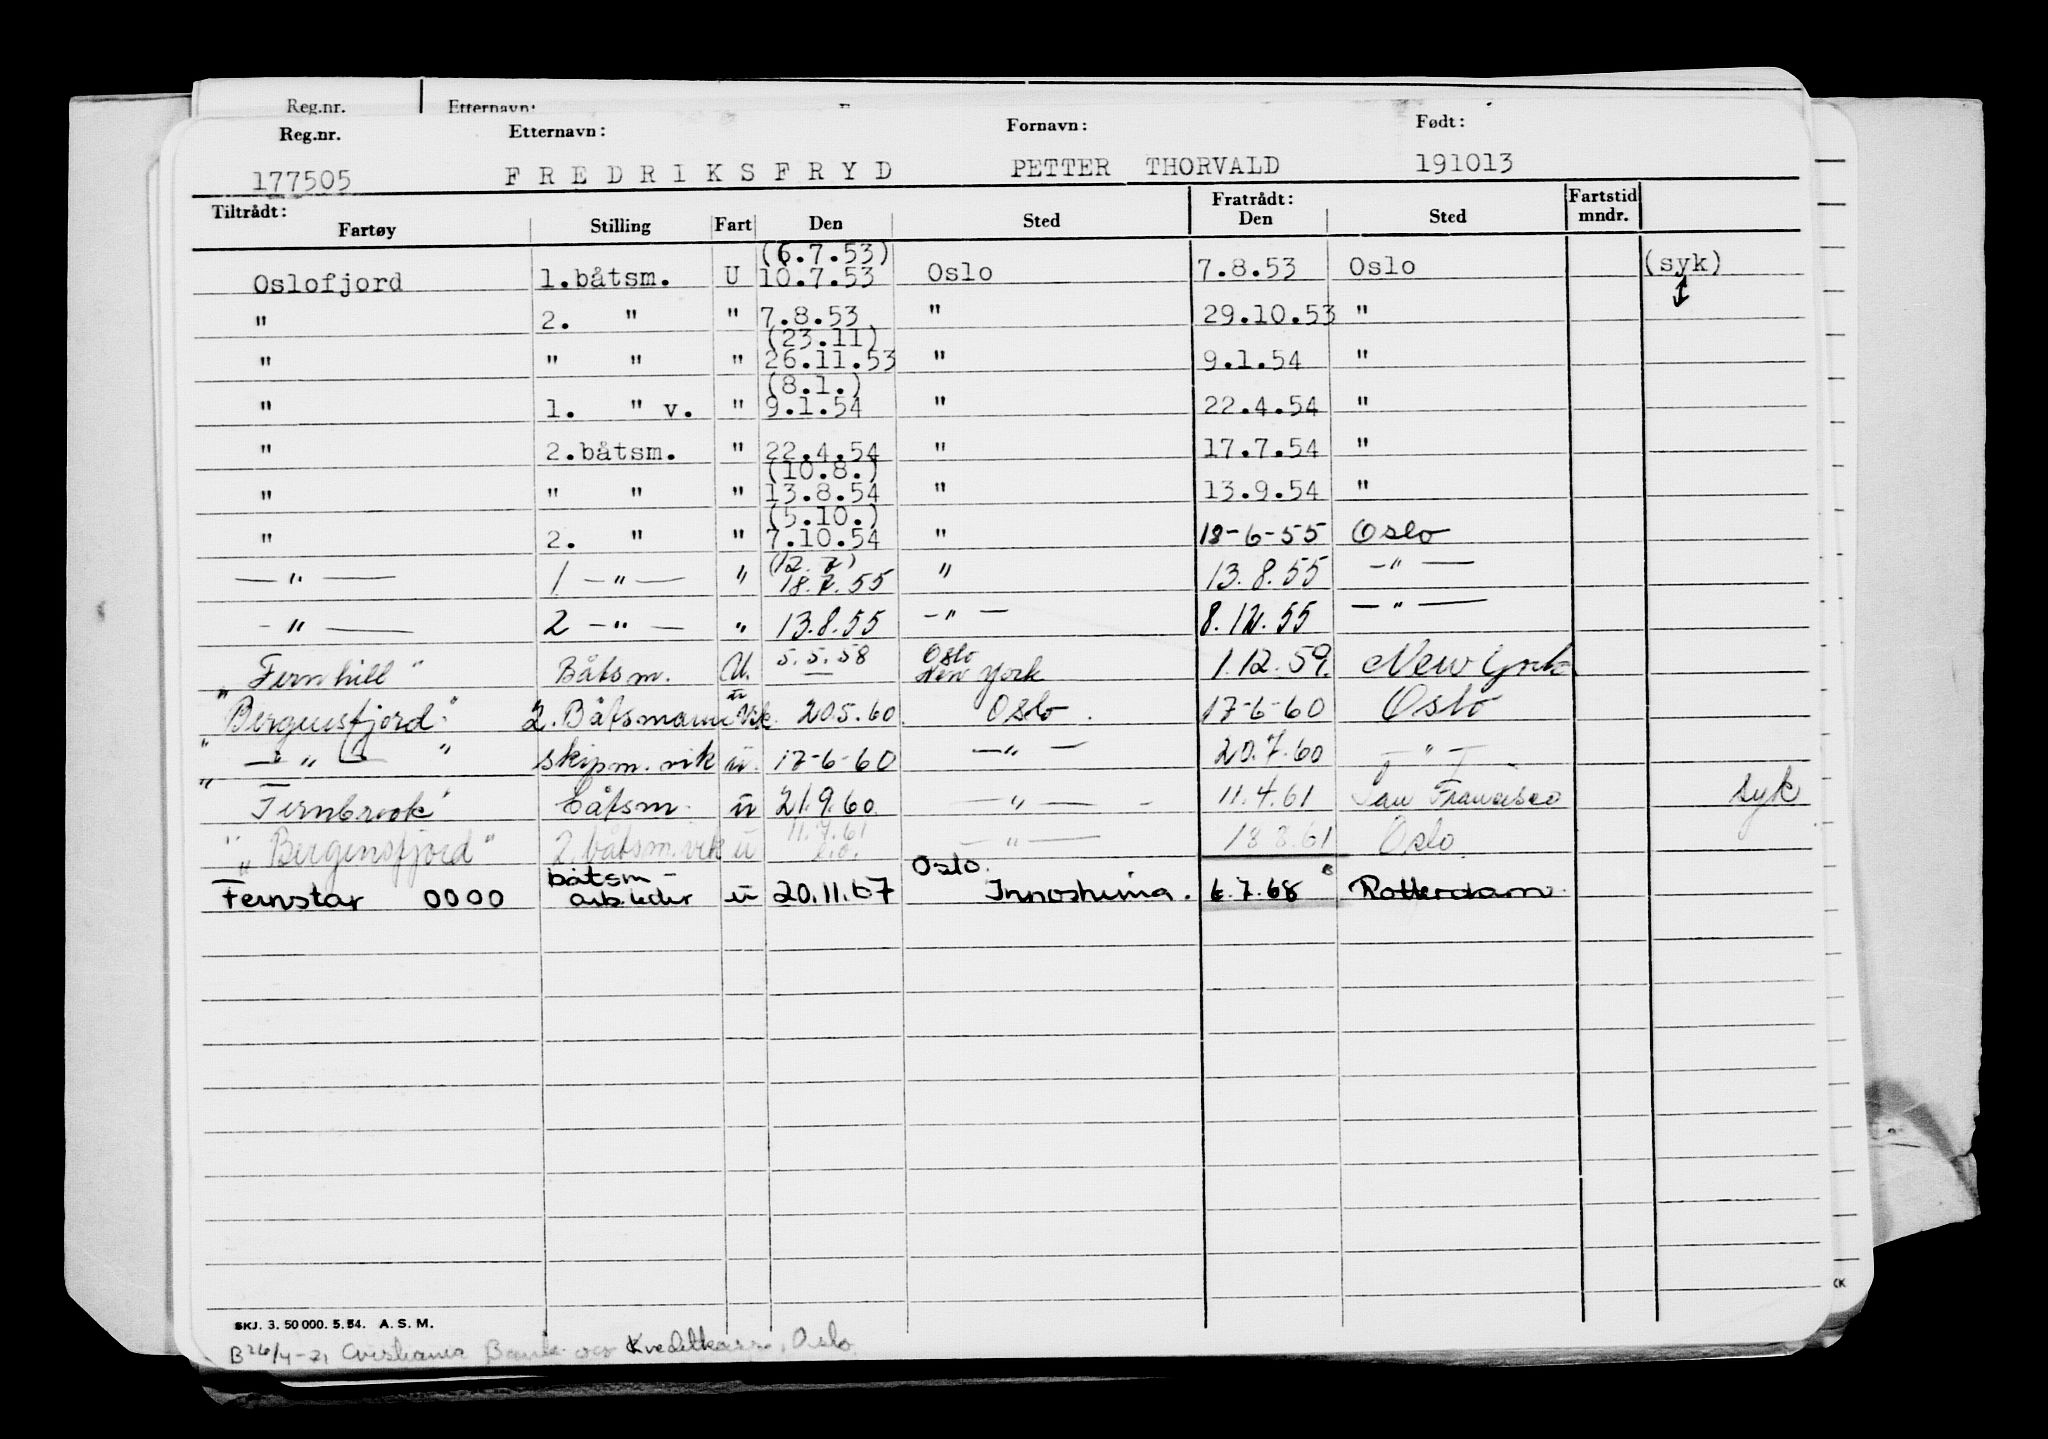 Reg.nr. Etternavn:
Reg.nr. Etternavn: Fornavn: Født:
177505 FREDRIKSFRYD PETTER THORVALD 191013
Tiltrådt: Fratrådt: Fartstid
Fartøy Stilling Fart Den Sted Den Sted mndr.
(6.7.53)
Oslofjord 1.båtsm. U 10.7.53 Oslo 7.8.53 Oslo (syk)
" 2. " " 7.8.53 " 29.10.53 "
(23.11)
" " " " 26.11.53 " 9.1.54 "
(8.1.)
" 1. " v. " 9.1.54 " 22.4.54 "
" 2.båtsm. " 22.4.54 " 17.7.54 "
(10.8.)
" " " " 13.8.54 " 13.9.54 "
(5.10.)
" 2. " " 7.10.54 " 18-6-55 Oslo
(12.7)
— " — 1 — " — " 18.7.55 " 13.8.55 — " —
— " — 2 — " — " 13.8.55 — " — 8.12.55 — " —
5.5.58 Oslo
"Fernhill" Båtsm. U. — New York 1.12.59. New York
"Bergensfjord" 2. Båtsmann vik. u 20.5.60. Oslo. 17-6-60 Oslo
" — " — " skipm. vik u. 17-6-60 — " — 20.7.60 — " —
"Fernbrook" båtsm. u 21.9.60. — " — 11.4.61 San Francisco syk
"Bergensfjord" 2. båtsm. vik u 11.7.61 — " — 18.8.61 Oslo
båtsm - Oslo.
Fernstar 0000 arb.leder u 20.11.67 Innoshima. 6.7.68 Rotterdam
SKJ. 3. 50 000. 5. 54. A. S. M.
B 26/4-21 Christiania Bank og Kredittkasse, Oslo.